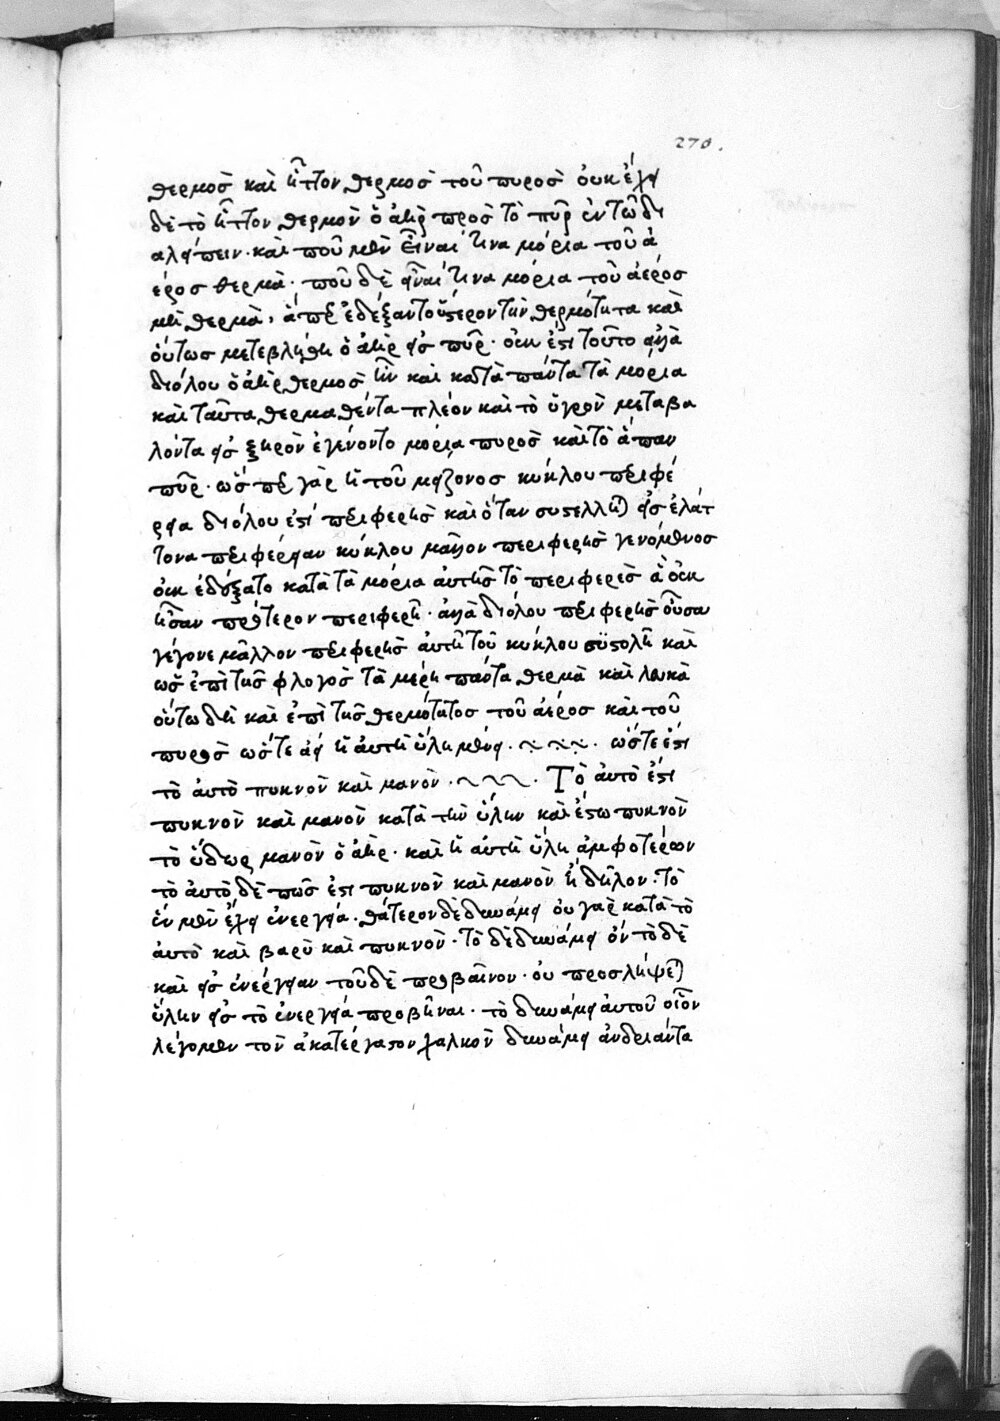 270.
θερμὸς καὶ ἧττον θερμὸς τοῦ πυρὸς οὐκ ἔχει
δὲ τὸ ἧττον θερμὸν ὁ ἀὴρ πρὸς τὸ πῦρ ἐν τῶ δι
αλείπειν· καὶ ποῦ μὲν εἶναί τινα μόρια τοῦ ἀ
έρος θερμὰ· ποῦ δὲ εἶναί τινα μόρια τοῦ ἀέρος
μὴ θερμὰ, ἅπερ ἐδέξαντο ὕστερον τὴν θερμότητα καὶ
οὕτως μετεβλήθη ὁ ἀὴρ εἰς πῦρ· οὐκ ἔστι τοῦτο ἀλλὰ
διόλου ὁ ἀὴρ θερμὸς ἦν καὶ κατὰ πάντα τὰ μόρια
καὶ ταῦτα θερμαθέντα πλέον καὶ τὸ ὑγρὸν μεταβα
λόντα εἰς ξηρὸν ἐγένοντο μόρια πυρὸς καὶ τὸ ἅπαν
πῦρ· ὥσπερ γὰρ ἡ τοῦ μείζονος κύκλου περιφέ
ρεια διόλου ἐστί περιφερὴς καὶ ὅταν συστελλῆται εἰς ἐλάτ
τονα περιφέρειαν κύκλου μᾶλλον περιφερὴς γενόμενος
οὐκ ἐδέξατο κατὰ τὰ μόρια αὐτῆς τὸ περιφερὲς ἃ οὐκ
ἦσαν πρότερον περιφερῆ· ἀλλὰ διόλου περιφερὴς οὖσα
γέγονε μᾶλλον περιφερὴς αὐτῆ τοῦ κύκλου συστολῆ καὶ
ὡς ἐπὶ τῆς φλογὸς τὰ μέρη πάντα θερμὰ καὶ λευκὰ
οὕτω δὴ καὶ ἐπὶ τῆς θερμότητος τοῦ ἀέρος καὶ τοῦ
πυρὸς ὥστε ἀεὶ ἡ αὐτὴ ὕλη μένει· ὥστε ἐστι
τὸ αὐτὸ πυκνὸν καὶ μανὸν· Τὸ αὐτὸ ἔστι
πυκνὸν καὶ μανὸν κατὰ τὴν ὕλην καὶ ἔστω πυκνὸν
τὸ ὕδωρ μανὸν ὁ ἀὴρ· καὶ ἡ αὐτὴ ὕλη ἀμφοτέρων
τὸ αὐτὸ δὲ πῶς ἐστι πυκνὸν καὶ μανὸν ἢ δῆλον· Τὸ
ἓν μὲν ἔχει ἐνεργεία· θάτερον δὲ δυνάμει οὐ γὰρ κατὰ τὸ
αὐτὸ καὶ βαρὺ καὶ πυκνὸν· Τὸ δὲ δυνάμει ὂν τὸ δὲ
καὶ εἰς ἐνέργειαν τοῦδὲ προβαῖνον· οὐ προσλήψεται
ὕλην εἰς τὸ ἐνεργεία προβῆναι· τὸ δυνάμει αὐτοῦ οἷον
λέγομεν τὸν ἀκατέργαστον χαλκὸν δυνάμει ἀνδριάντα